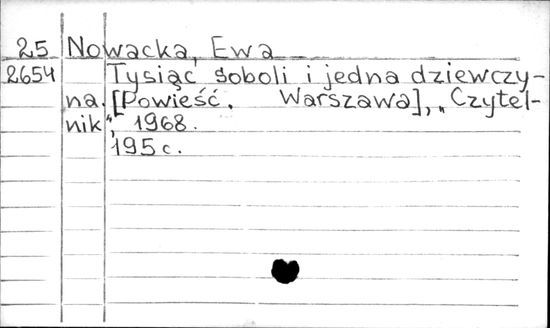 25 Nowacka, Ewa
2654 Tysiąc soboli i jedna dziewczy-
na. [Powieść. Warszawa], „Czytel-
nik“, 1968.
195 c.